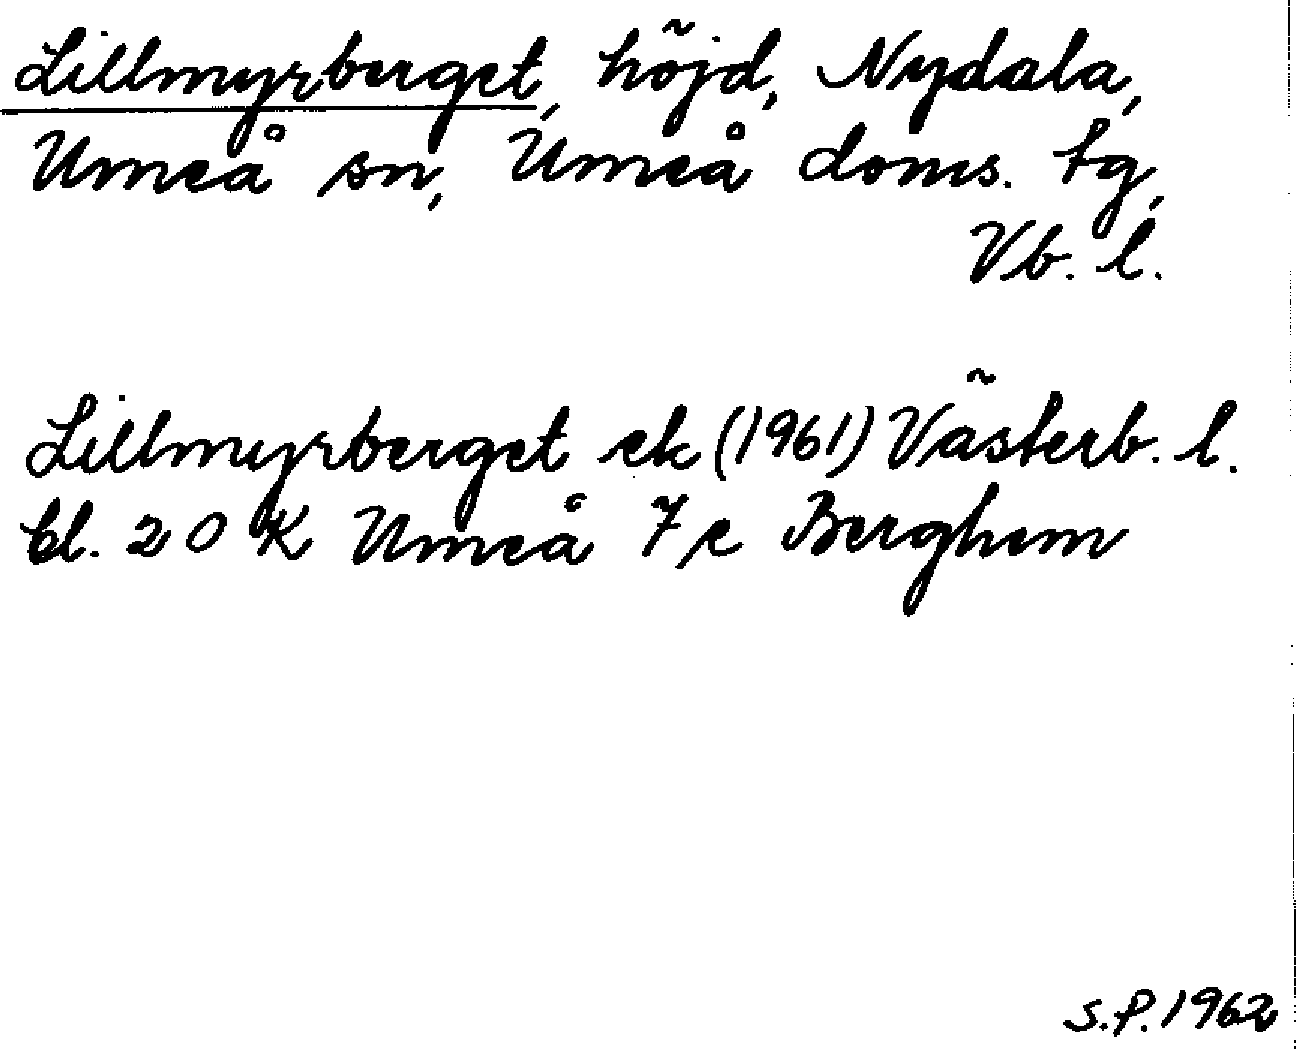 Lillmyrberget, höjd, Nydala,
Umeå sn, Umeå doms. tg,
Vb. l.
Lillmyrberget ek (1961) Västerb. l.
bl. 20 K Umeå 7 e Berghem
S.P. 1962